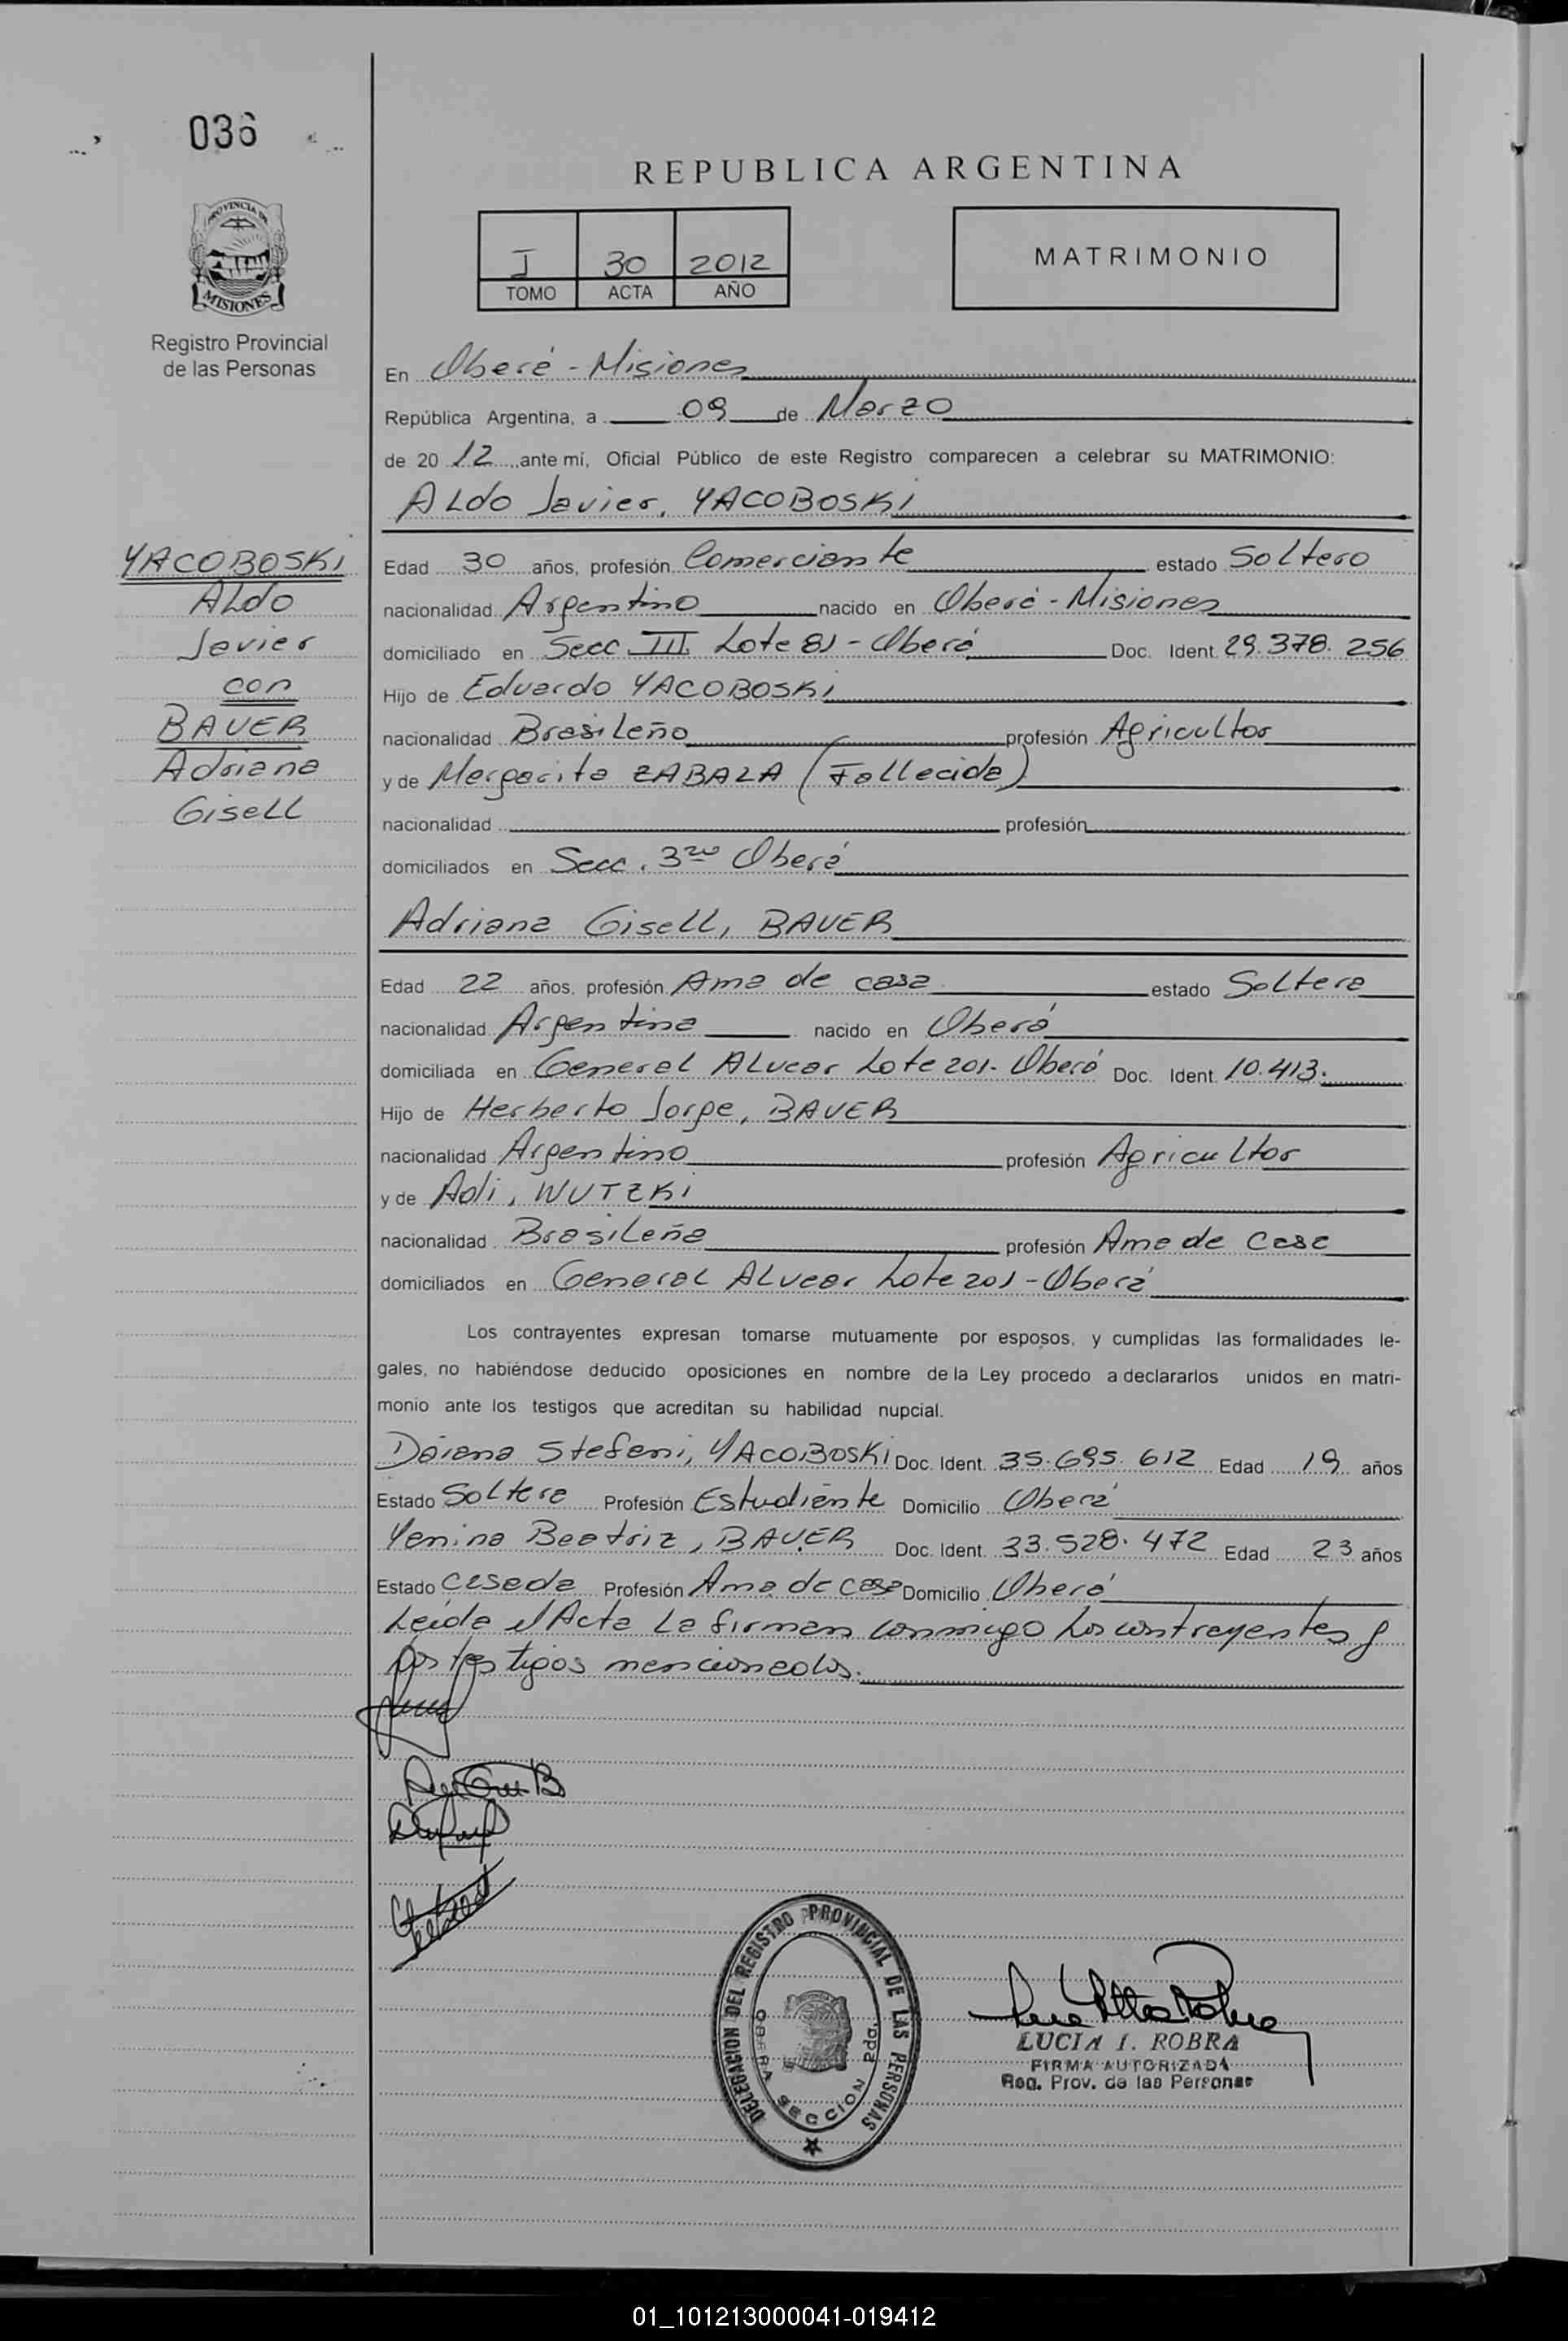 036
PROVINCIA DE
MISIONES
Registro Provincial
de las Personas
REPUBLICA ARGENTINA
I 30 2012
TOMO ACTA AÑO
MATRIMONIO
En Oberá - Misiones
República Argentina, a 09 de Marzo
de 20 12 ante mí, Oficial Público de este Registro comparecen a celebrar su MATRIMONIO:
Aldo Javier, YACOBOSKI
YACOBOSKI
Aldo
Javier
con
BAUER
Adriana
Gisell
Edad 30 años, profesión Comerciante estado Soltero
nacionalidad Argentino nacido en Oberá - Misiones
domiciliado en Secc III Lote 81 - Oberá Doc. Ident. 29.378.256
Hijo de Eduardo YACOBOSKI
nacionalidad Brasileño profesión Agricultor
y de Margarita ZABALA (Fallecida)
nacionalidad profesión
domiciliados en Secc. 3ra Oberá
Adriana Gisell, BAUER
Edad 22 años, profesión Ama de casa estado Soltera
nacionalidad Argentina nacido en Oberá
domiciliada en General Alvear Lote 201 - Oberá Doc. Ident. 10.413.
Hijo de Herberto Jorge, BAUER
nacionalidad Argentino profesión Agricultor
y de Adi, WUTZKI
nacionalidad Brasileña profesión Ama de Casa
domiciliados en General Alvear Lote 201 - Oberá
Los contrayentes expresan tomarse mutuamente por esposos, y cumplidas las formalidades le-
gales, no habiéndose deducido oposiciones en nombre de la Ley procedo a declararlos unidos en matri-
monio ante los testigos que acreditan su habilidad nupcial.
Daiana Stefani, YACOBOSKI Doc. Ident. 35.695.612 Edad 19 años
Estado Soltera Profesión Estudiante Domicilio Oberá
Yenina Beatriz, BAUER Doc. Ident. 33.528.472 Edad 23 años
Estado Casada Profesión Ama de casa Domicilio Oberá
Leída el Acta La firman conmigo Los contrayentes y
Los testigos mencionados.
DELEGACION DEL REGISTRO PROVINCIAL DE LAS PERSONAS
OBERA SECCION 2da.
LUCIA I. ROBRA
FIRMA AUTORIZADA
Reg. Prov. de las Personas
01_101213000041-019412